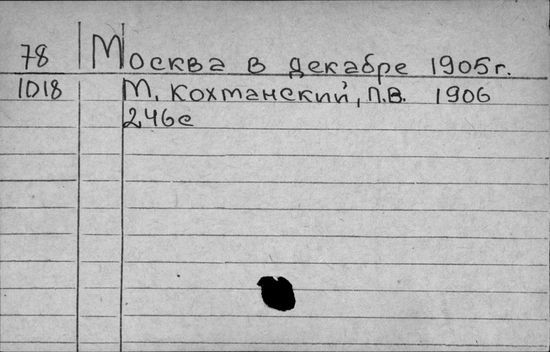 78 Москва в декабре 1905г.
1018 М. Кохманский, П.В. 1906
246с